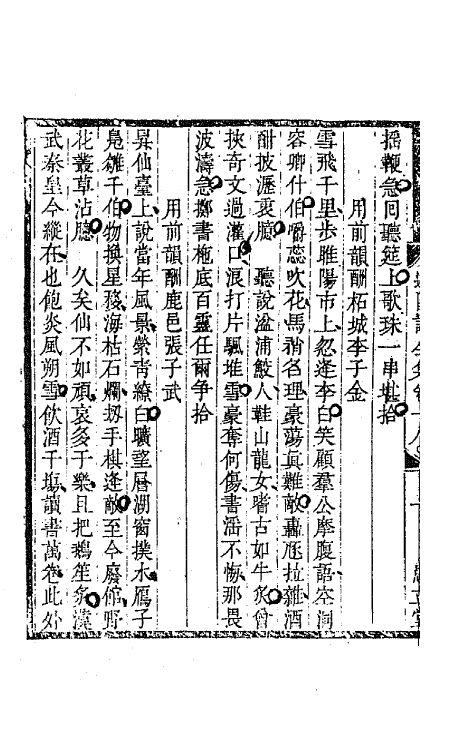 搖鞭急回聽筵上歌珠一串堪拾
用前韻酬柘城李子金
雪飛千里步睢陽市上忽逢李白笑顧羣公摩腹語空洞
容卿什伯嚼蕊吹花馬矟名理豪蕩眞難敵轟厖拉雜酒
酣披瀝衷臆　聽說湓浦鮫人鞋山龍女嗜古如牛炙曾
挾奇文過灌口浪打片颿堆雪豪奪何傷書淫不悔那畏
波濤急擲書柂底百靈任爾爭拾
用前韻酬鹿邑張子武
昇仙臺上說當年風景縈靑繚白曠望層湖窗撲水鴈子
鳧雛千伯物換星移海枯石爛搦手棋逢敵至今廢館野
花叢草沾臆　久矣仙不如頑哀多于樂且把鵝笙炙漢
武秦皇今縱在也飽炎風朔雪飲酒千塲讀書萬卷此外